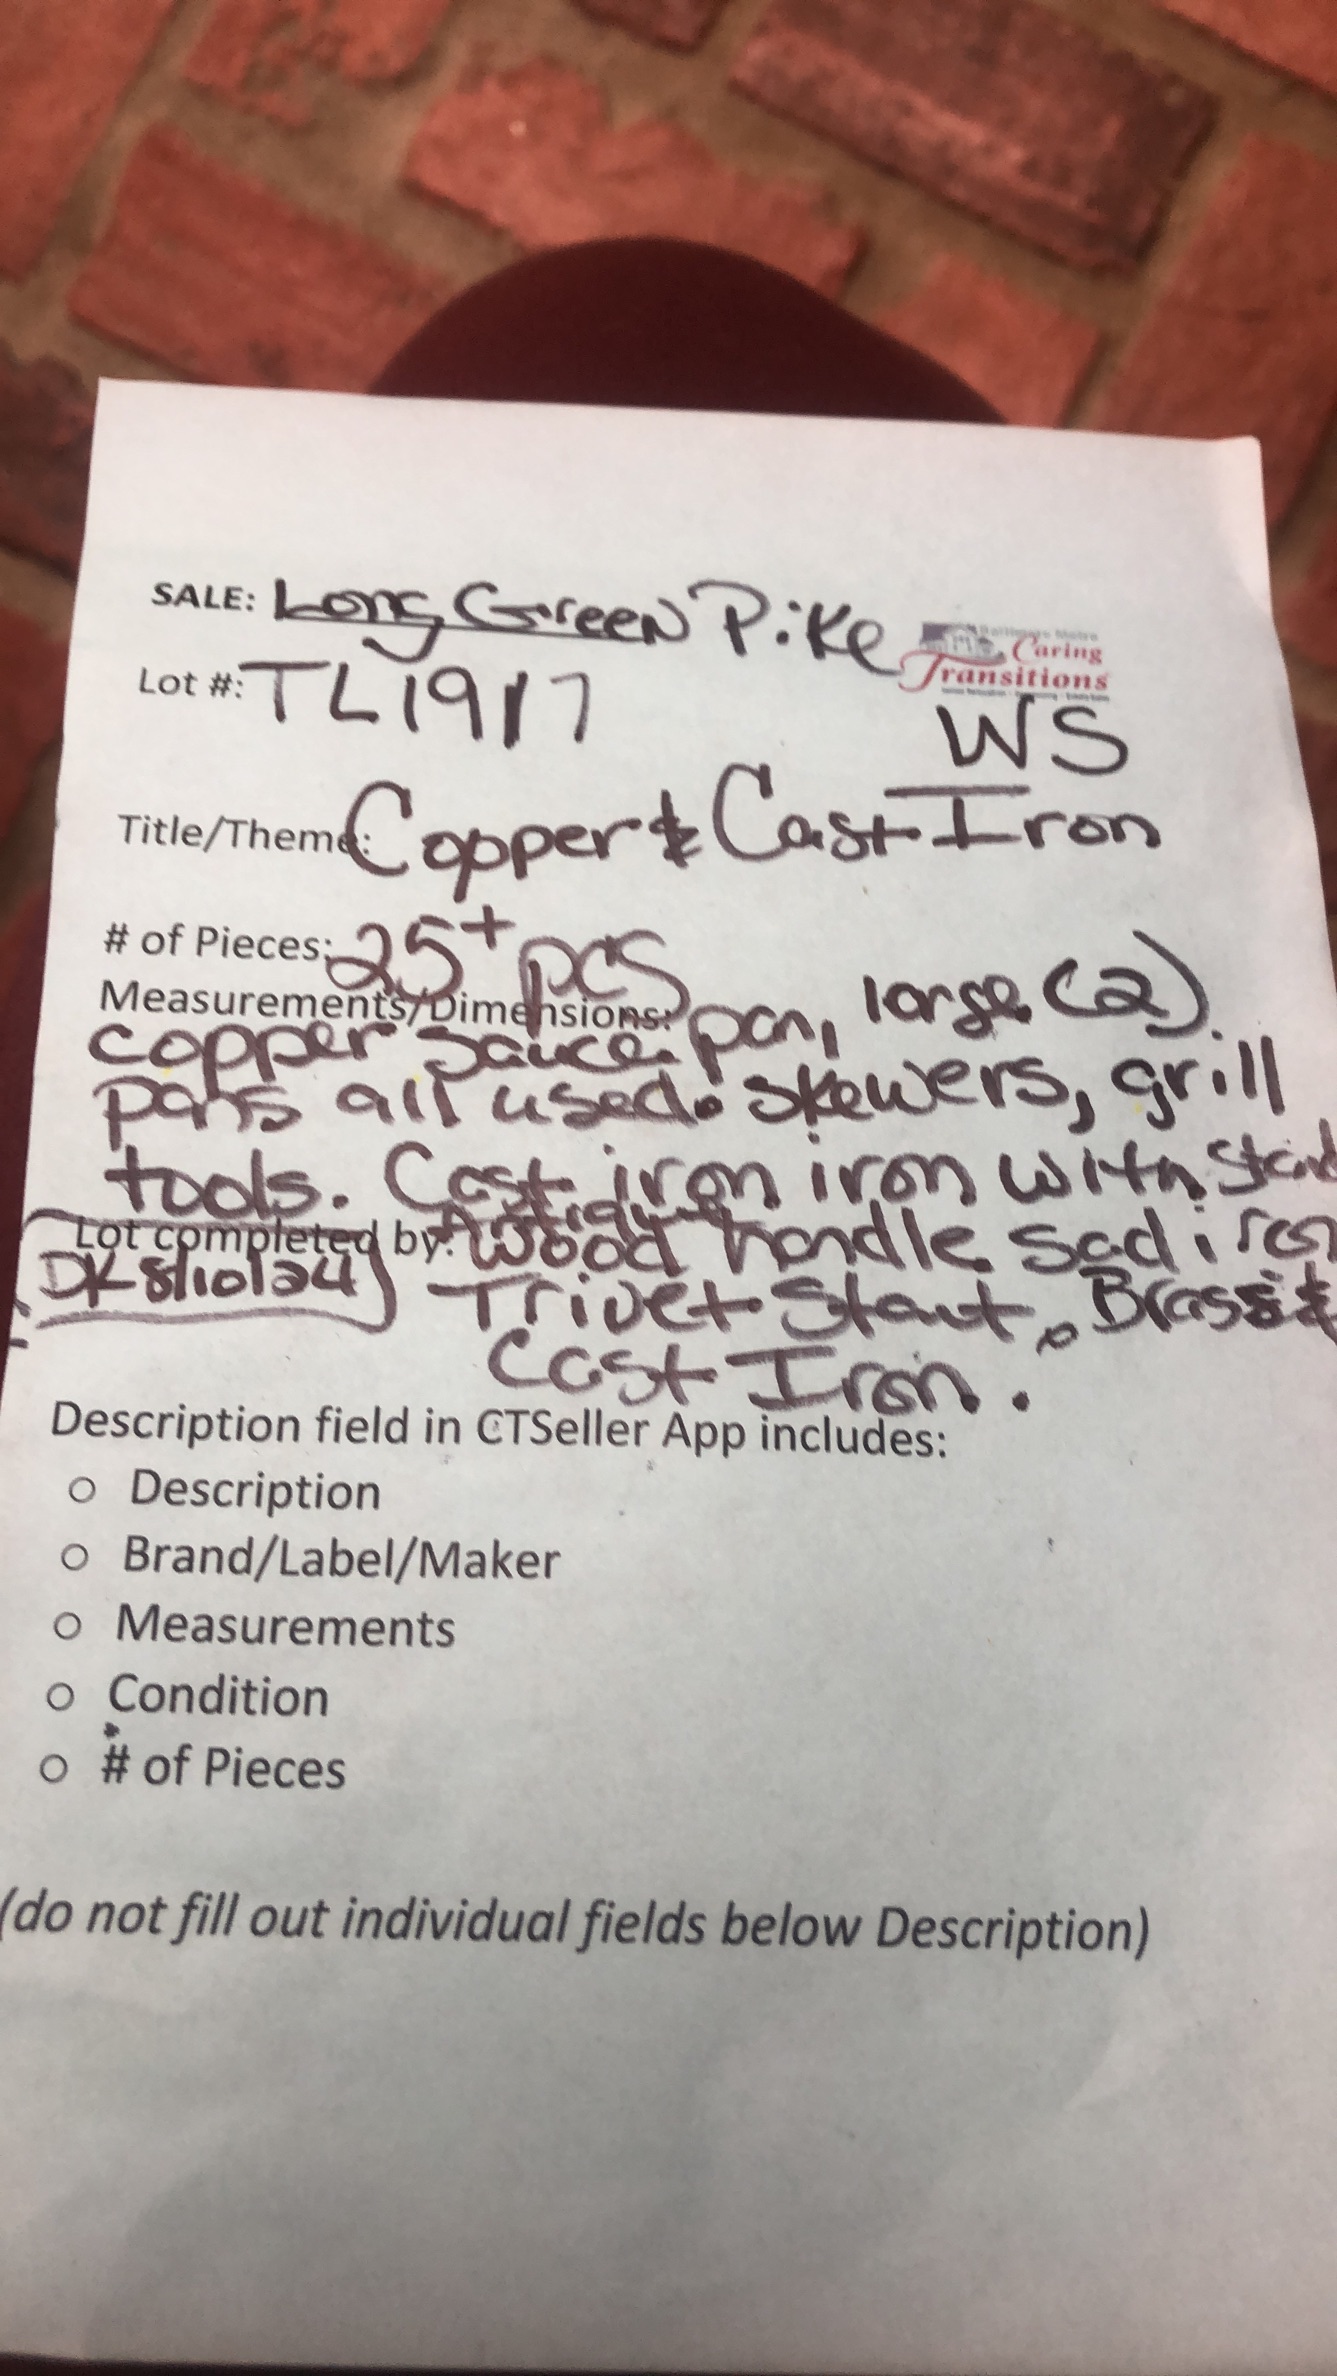 SALE: Long Green Pike
Caring
Transitions
Lot #: TL1917
WS
Title/Theme: Copper & Cast Iron
# of Pieces: 25+ pcs
Measurements/Dimensions:
copper sauce pan, large (2)
pans all used. skewers, grill
tools. Cast iron iron with
Antique
Lot completed by: Wood handle sad iron
DK 8/10/24 Trivet Start. Brass &
Cast Iron.
Description field in CTSeller App includes:
o Description
o Brand/Label/Maker
o Measurements
o Condition
o # of Pieces
(do not fill out individual fields below Description)